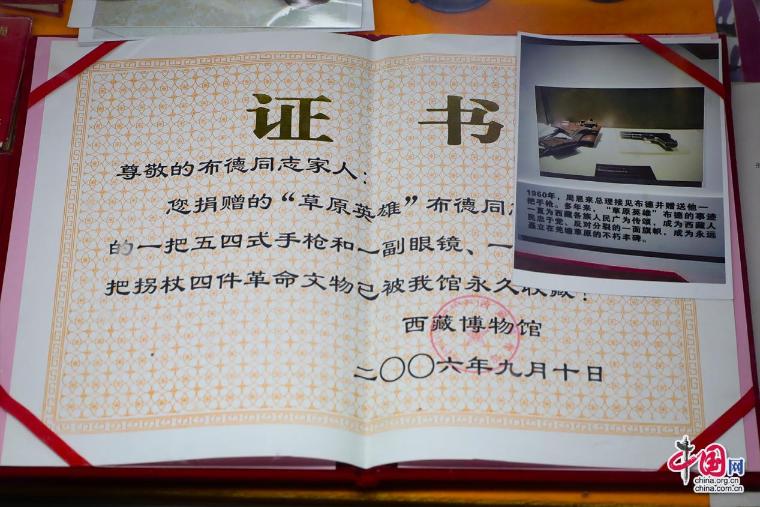 证 书
尊敬的布德同志家人:
您捐赠的“草原英雄”布德同志
的一把五四式手枪和一副眼镜、一
把拐杖四件革命文物已被我馆永久收藏!
西藏博物馆
二〇〇六年九月十日
1960年,周恩来总理接见布德并赠送他一
把手枪。多年来,“草原英雄”布德的事迹
一直为西藏各族人民广为传颂,成为西藏人
民忠于党、反对分裂的一面旗帜,成为永远
矗立在羌塘草原的不朽丰碑。
中国网
china.org.cn
china.com.cn